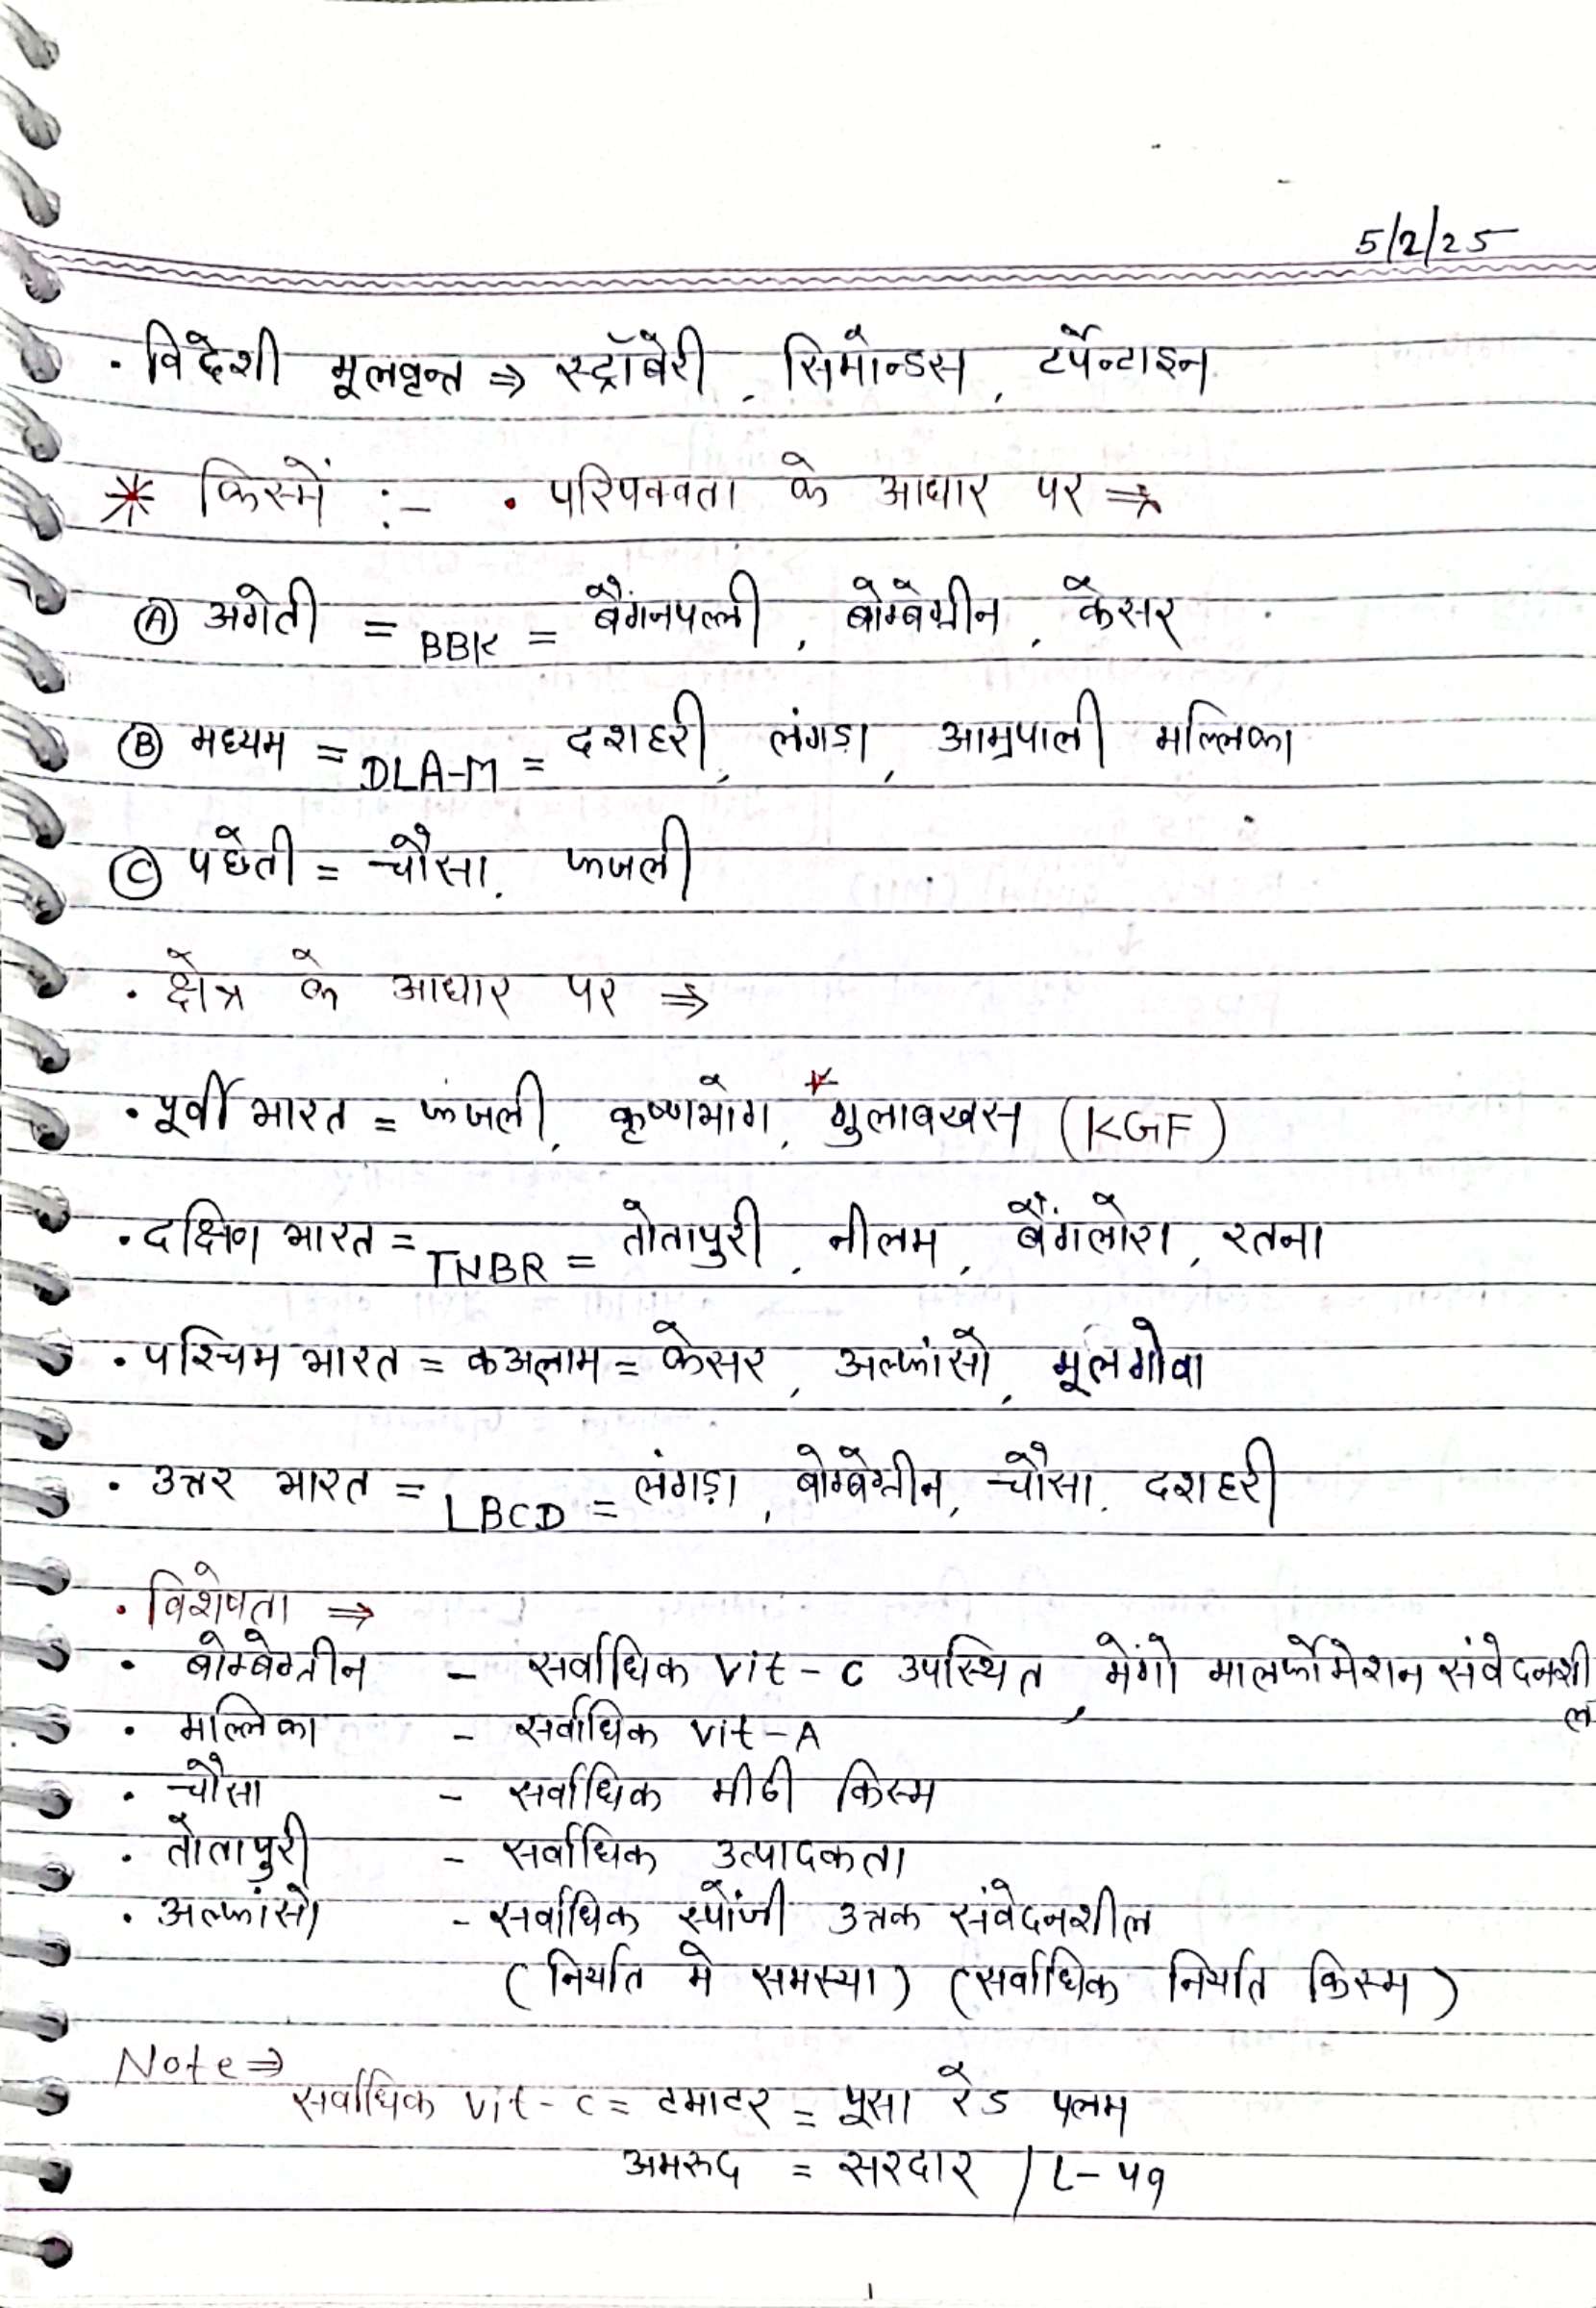 5/2/25
• विदेशी मूलवृन्त ⇒ स्ट्रॉबेरी, सिमोन्डस, टर्पेन्टाइन
* किस्में :- • परिपक्वता के आधार पर ⇒
Ⓐ अगेती = BBK = बैंगनपल्ली, बोम्बेग्रीन, केसर
Ⓑ मध्यम = DLA-M = दशहरी, लंगड़ा, आम्रपाली मल्लिका
Ⓒ पछेती = चौसा, फजली
• क्षेत्र के आधार पर ⇒
• पूर्वी भारत = फजली, कृष्णभोग, *गुलाबखस (KGF)
• दक्षिण भारत = TNBR = तोतापुरी, नीलम, बैंगलोरा, रतना
• पश्चिम भारत = कअलाम = केसर, अल्फांसो, मूलगोवा
• उत्तर भारत = LBCD = लंगड़ा, बोम्बेग्रीन, चौसा, दशहरी
• विशेषता ⇒
• बोम्बेग्रीन - सर्वाधिक Vit-C उपस्थित, मेंगो मालफोर्मेशन संवेदनशील
• मल्लिका - सर्वाधिक Vit-A
• चौसा - सर्वाधिक मीठी किस्म
• तोतापुरी - सर्वाधिक उत्पादकता
• अल्फांसो - सर्वाधिक स्पोंजी उत्तक संवेदनशील
(निर्यात मे समस्या) (सर्वाधिक निर्यात किस्म)
Note ⇒
सर्वाधिक Vit-C = टमाटर = पूसा रेड प्लम
अमरुद = सरदार / L-49